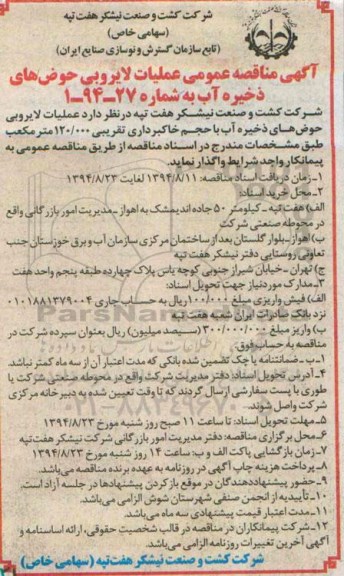 شرکت کشت و صنعت نیشکر هفت تپه
(سهامی خاص)
(تابع سازمان گسترش و نوسازی صنایع ایران)
آگهی مناقصه عمومی عملیات لایروبی حوض‌های
ذخیره آب به شماره ۲۷-۹۴-۱
شرکت کشت و صنعت نیشکر هفت تپه در نظر دارد عملیات لایروبی
حوض‌های ذخیره آب با حجم خاکبرداری تقریبی ۱۲۰/۰۰۰ متر مکعب
طبق مشخصات مندرج در اسناد مناقصه از طریق مناقصه عمومی به
پیمانکار واجد شرایط واگذار نماید.
۱-زمان دریافت اسناد مناقصه: ۱۳۹۴/۸/۱۱ لغایت ۱۳۹۴/۸/۲۳
۲-محل خرید اسناد:
الف) هفت تپه - کیلومتر ۵۰ جاده اندیمشک به اهواز - مدیریت امور بازرگانی واقع
در محوطه صنعتی شرکت
ب) اهواز-بلوار گلستان بعد از ساختمان مرکزی سازمان آب و برق خوزستان جنب
تعاونی روستایی دفتر نیشکر هفت تپه
ج) تهران - خیابان شیراز جنوبی کوچه یاس پلاک چهارده طبقه پنجم واحد هفت
۳-مدارک مورد نیاز جهت تحویل اسناد:
الف) فیش واریزی مبلغ ۱۰۰/۰۰۰ ریال به حساب جاری ۰۱۰۱۸۸۱۳۷۹۰۰۴
نزد بانک صادرات ایران شعبه هفت تپه
ب) واریز مبلغ ۳۰۰/۰۰۰/۰۰۰ (سیصد میلیون) ریال بعنوان سپرده شرکت در
مناقصه به حساب فوق
۱-ب-ضمانتنامه یا چک تضمین شده بانکی که مدت اعتبار آن از سه ماه کمتر نباشد.
۴-آدرس تحویل اسناد: دفتر مدیریت شرکت واقع در محوطه صنعتی شرکت یا
طوری با پست سفارشی ارسال گردند که تا وقت تعیین شده به دبیرخانه مرکزی
شرکت واصل شوند.
۵-مهلت تحویل اسناد: تا ساعت ۱۱ صبح روز شنبه مورخ ۱۳۹۴/۸/۲۳
۶-محل برگزاری مناقصه: دفتر مدیریت امور بازرگانی شرکت نیشکر هفت تپه
۷-زمان بازگشایی پاکت الف و ب: ساعت ۱۴ روز شنبه مورخ ۱۳۹۴/۸/۲۳
۸-پرداخت هزینه چاپ آگهی در روزنامه به عهده برنده مناقصه می‌باشد.
۹-حضور پیشنهاددهندگان در موقع باز کردن پیشنهادها در جلسه آزاد است.
۱۰-تأییدیه از انجمن صنفی شهرستان شوش الزامی می‌باشد.
۱۱-مدت اعتبار قیمت پیشنهادی سه ماه می‌باشد.
۱۲-شرکت پیمانکاران در مناقصه در قالب شخصیت حقوقی، ارائه اساسنامه و
آگهی آخرین تغییرات روزنامه الزامی می‌باشد.
شرکت کشت و صنعت نیشکر هفت تپه (سهامی خاص)